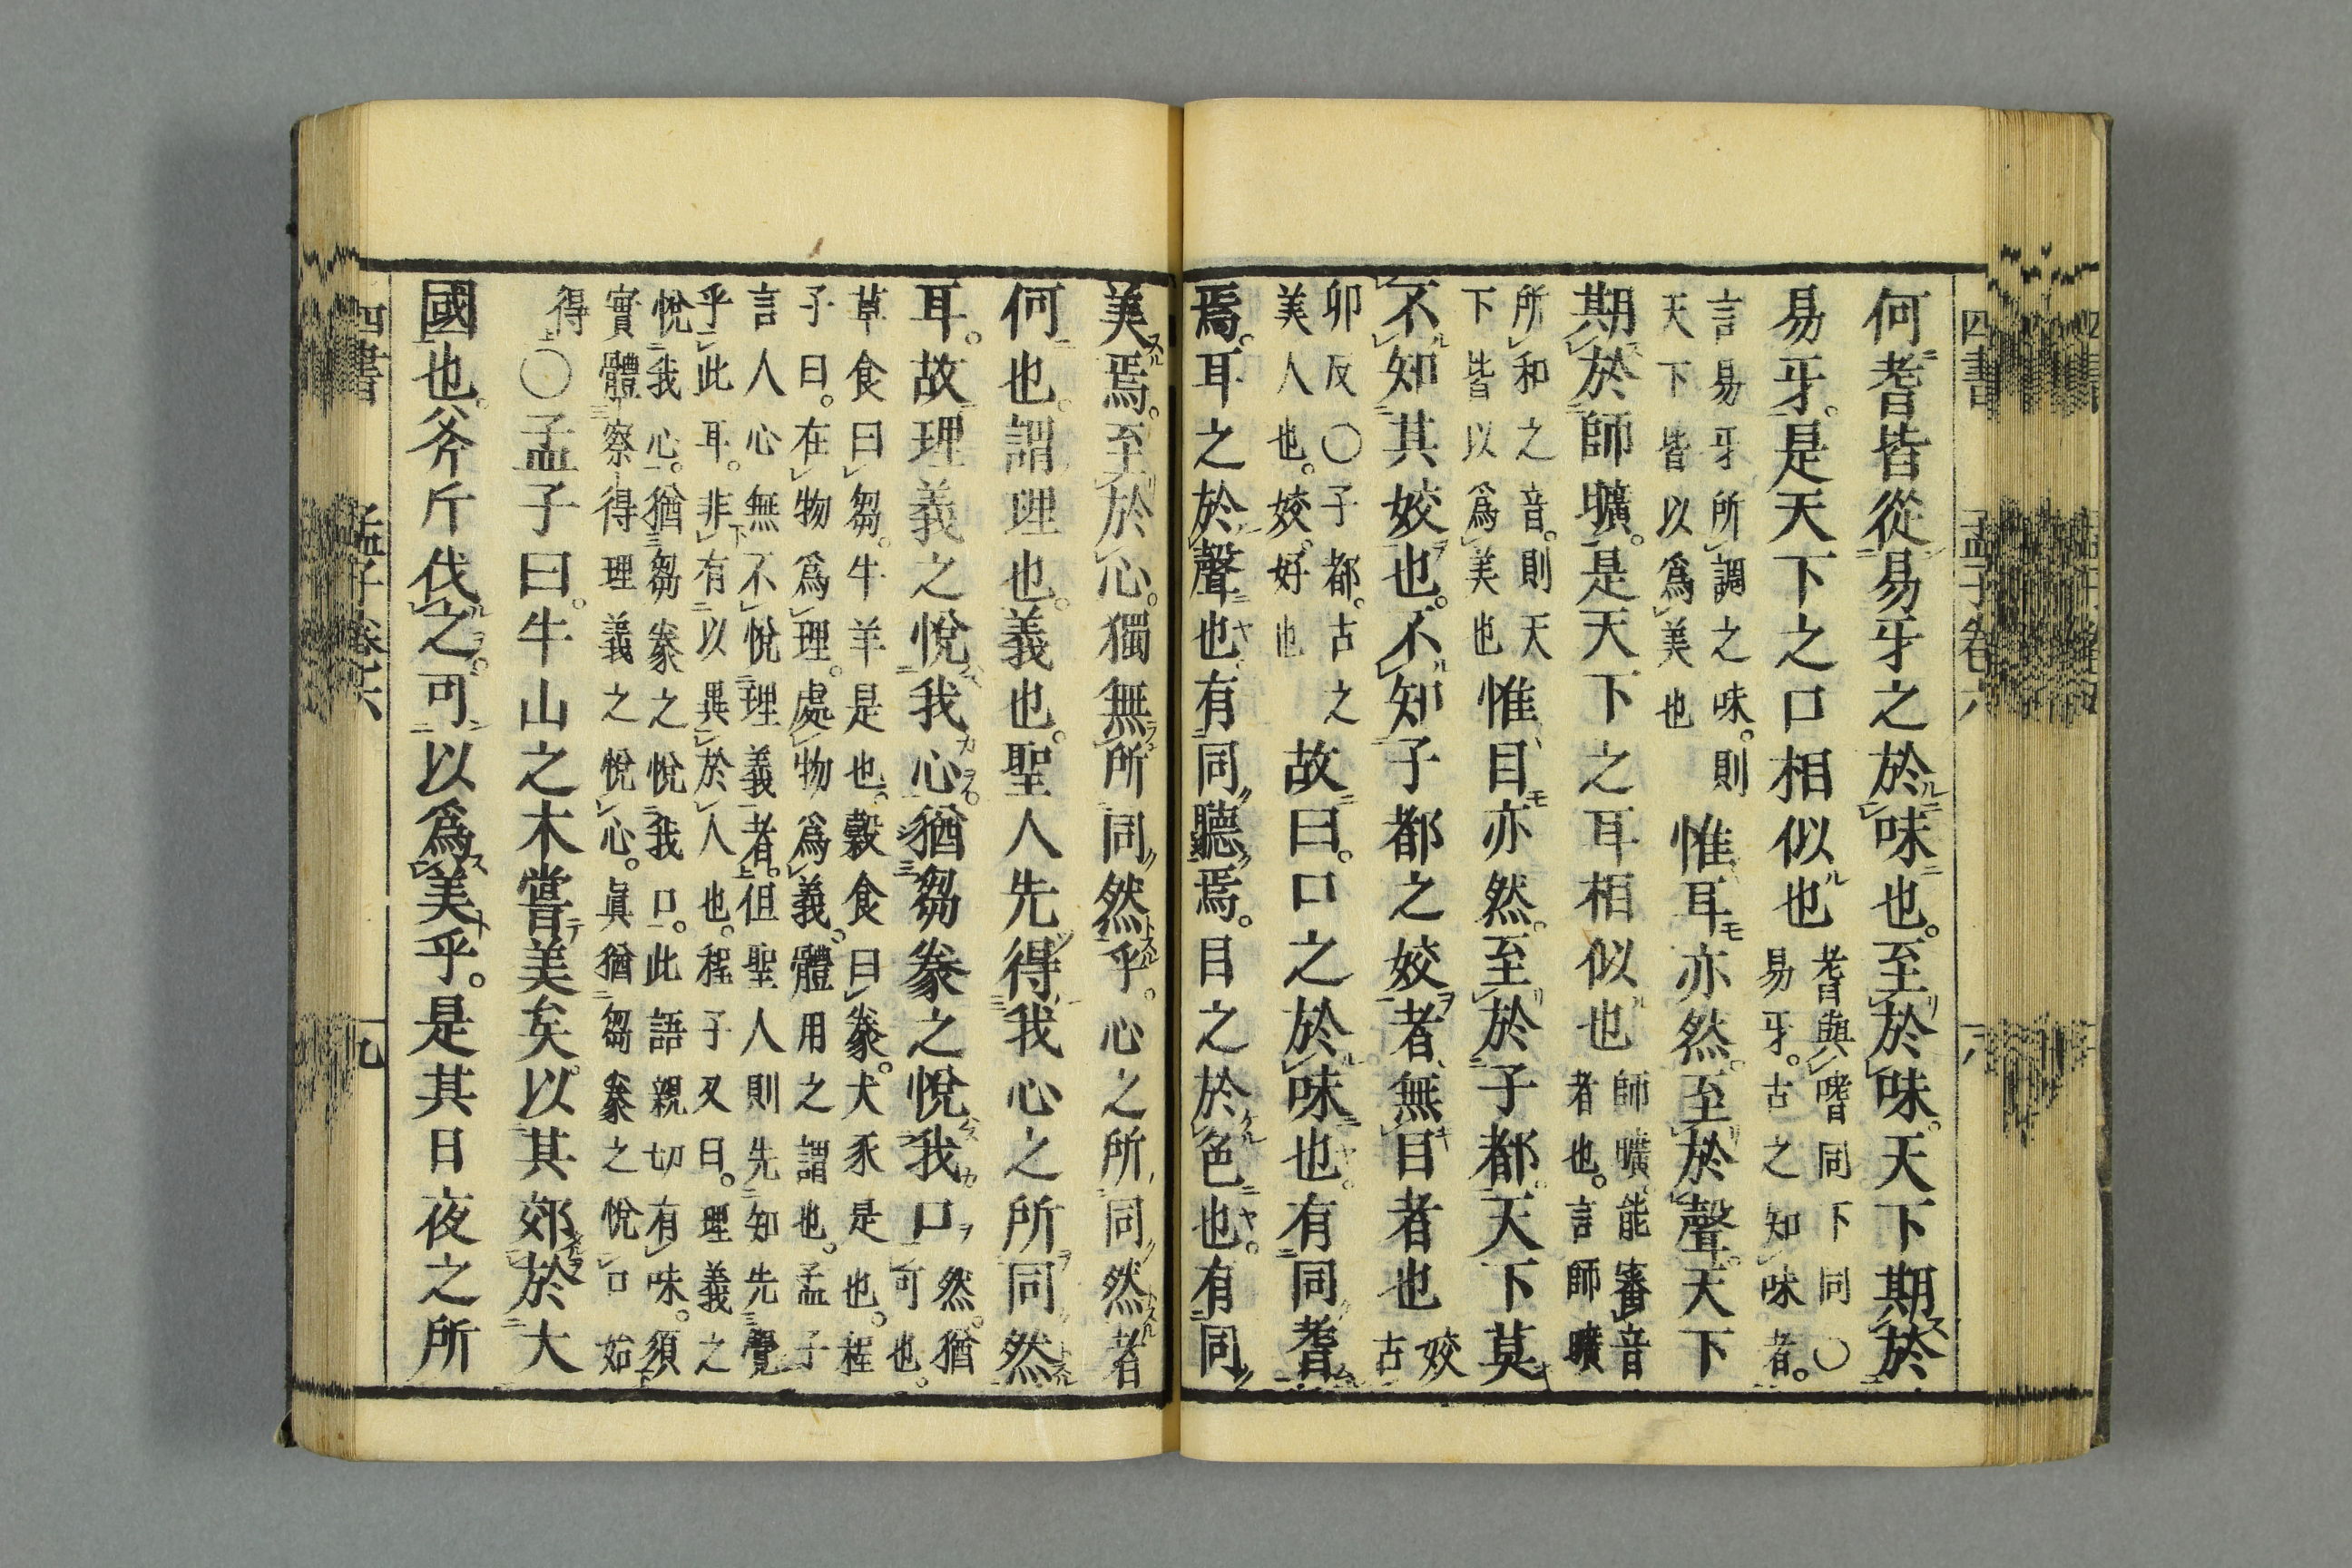 四書 孟子卷六
何耆皆從易牙之於味也。至於味。天下期於
易牙。是天下之口相似也
耆與嗜同下同〇
易牙。古之知味者。
言易牙所調之味。則
天下皆以爲美也
惟耳亦然。至於聲。天下
期於師壙。是天下之耳相似也
師曠能審音
者也。言師曠
所和之音。則天
下皆以爲美也
惟目亦然。至於子都。天下莫
不知其姣也。不知子都之姣者、無目者也
姣
古
卯反〇子都。古之
美人也。姣。好也
故曰。口之於味也。有同耆
焉。耳之於聲也。有同聽焉。目之於色也。有同
美焉。至於心。獨無所同然乎。心之所同然者
何也。謂理也。義也。聖人先得我心之所同然
耳。故理義之悅我心。猶芻豢之悅我口
然。猶
可也。
草食曰芻。牛羊是也。穀食曰豢。犬豕是也。程
子曰。在物爲理。處物爲義。體用之謂也。孟子
言人心無不悅理義者。但聖人則先知先覺
乎此耳。非有以異於人也。程子又曰。理義之
悅我心。猶芻豢之悅我口。此語親切有味。須
實體察得理義之悅心。眞猶芻豢之悅口始
得
〇孟子曰。牛山之木嘗美矣。以其郊於大
國也。斧斤伐之。可以爲美乎。是其日夜之所
四書 孟子卷六 九